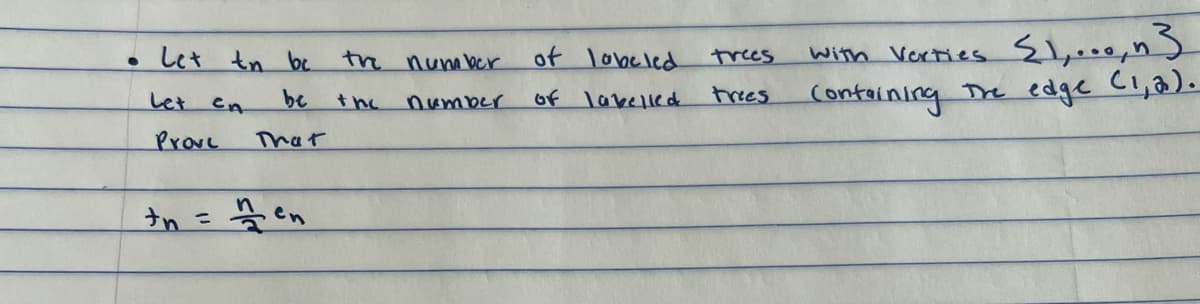 • Let tn be the number of labeled trees with Verties {1,...,n}
Let en be the number of labelled trees containing The edge (1,2).
Prove That
tn = n/2 en